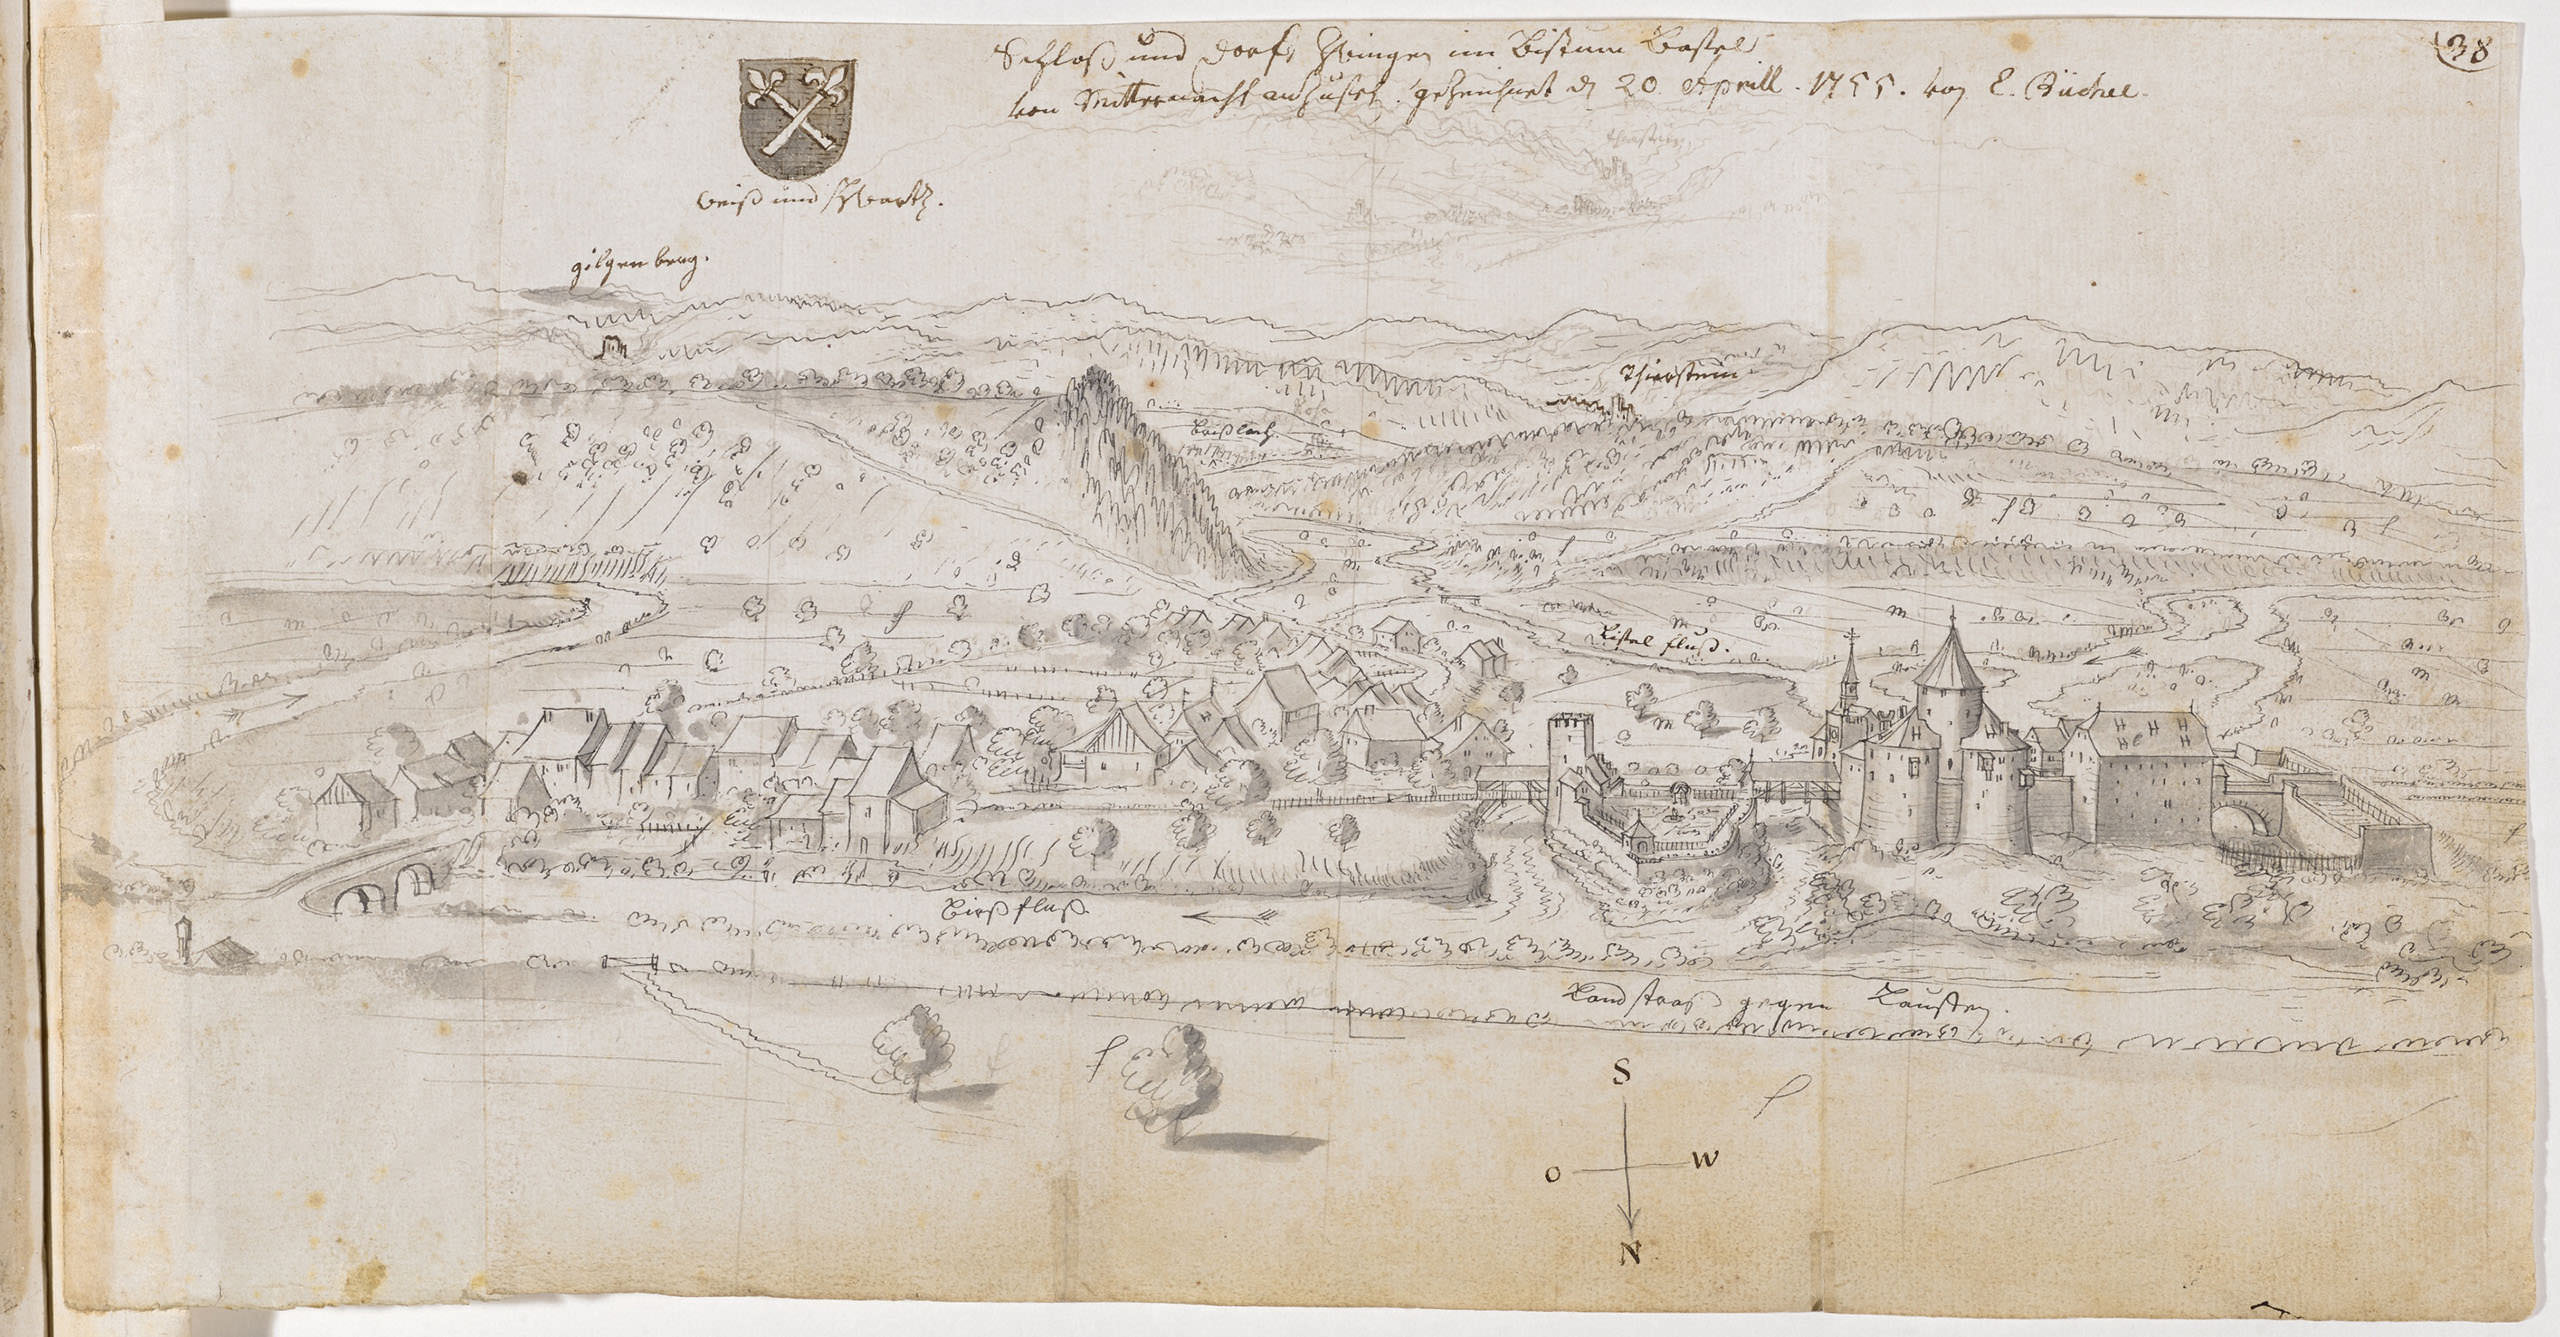 38
Schloß und Dorff Zwingen im Bistum Basel
von Mitternacht anzusehen. gezeichnet d 20. Aprill. 1755. von E. Büchel.
weiß und schwartz.
gilgenberg.
Thierstein
Thierstein
Brißlach.
Lüsel fluß.
Birß fluß.
Landstraß gegen Lauffen.
S
O W
N